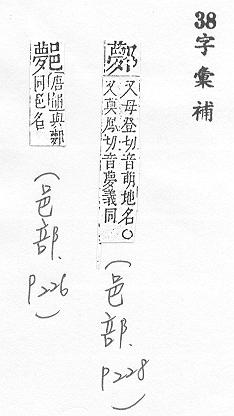 38字彙補
鄸
又母登切音萌地名○
又莫鳳切音夢義同
(邑部. P228)
唐韻與鄸
同邑名
(邑部. P226)